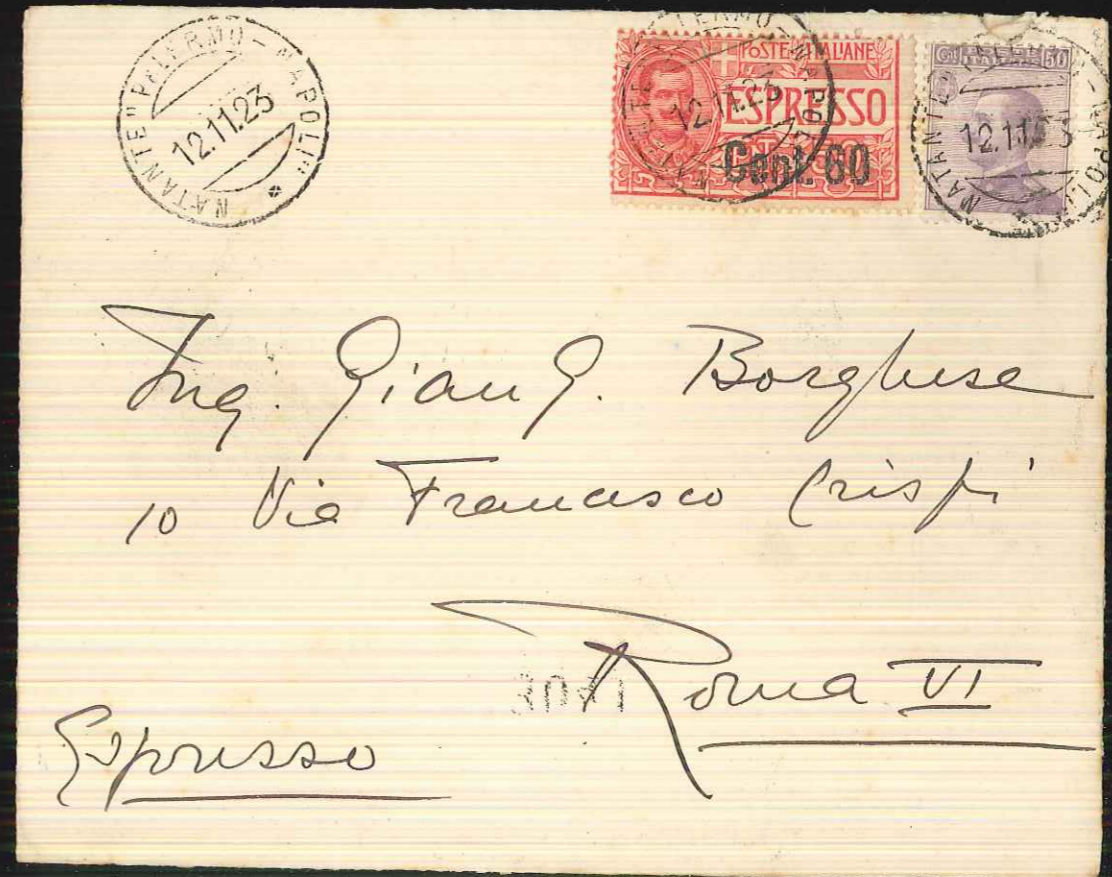 NATANTE "PALERMO-NAPOLI"
12.11.23
POSTE ITALIANE
ESPRESSO
Cent. 60
12.11.23
50
NATANTE "PALERMO-NAPOLI"
12.11.23
Ing. Gian G. Borghese
10 Via Francesco Crispi
Roma VI
Espresso